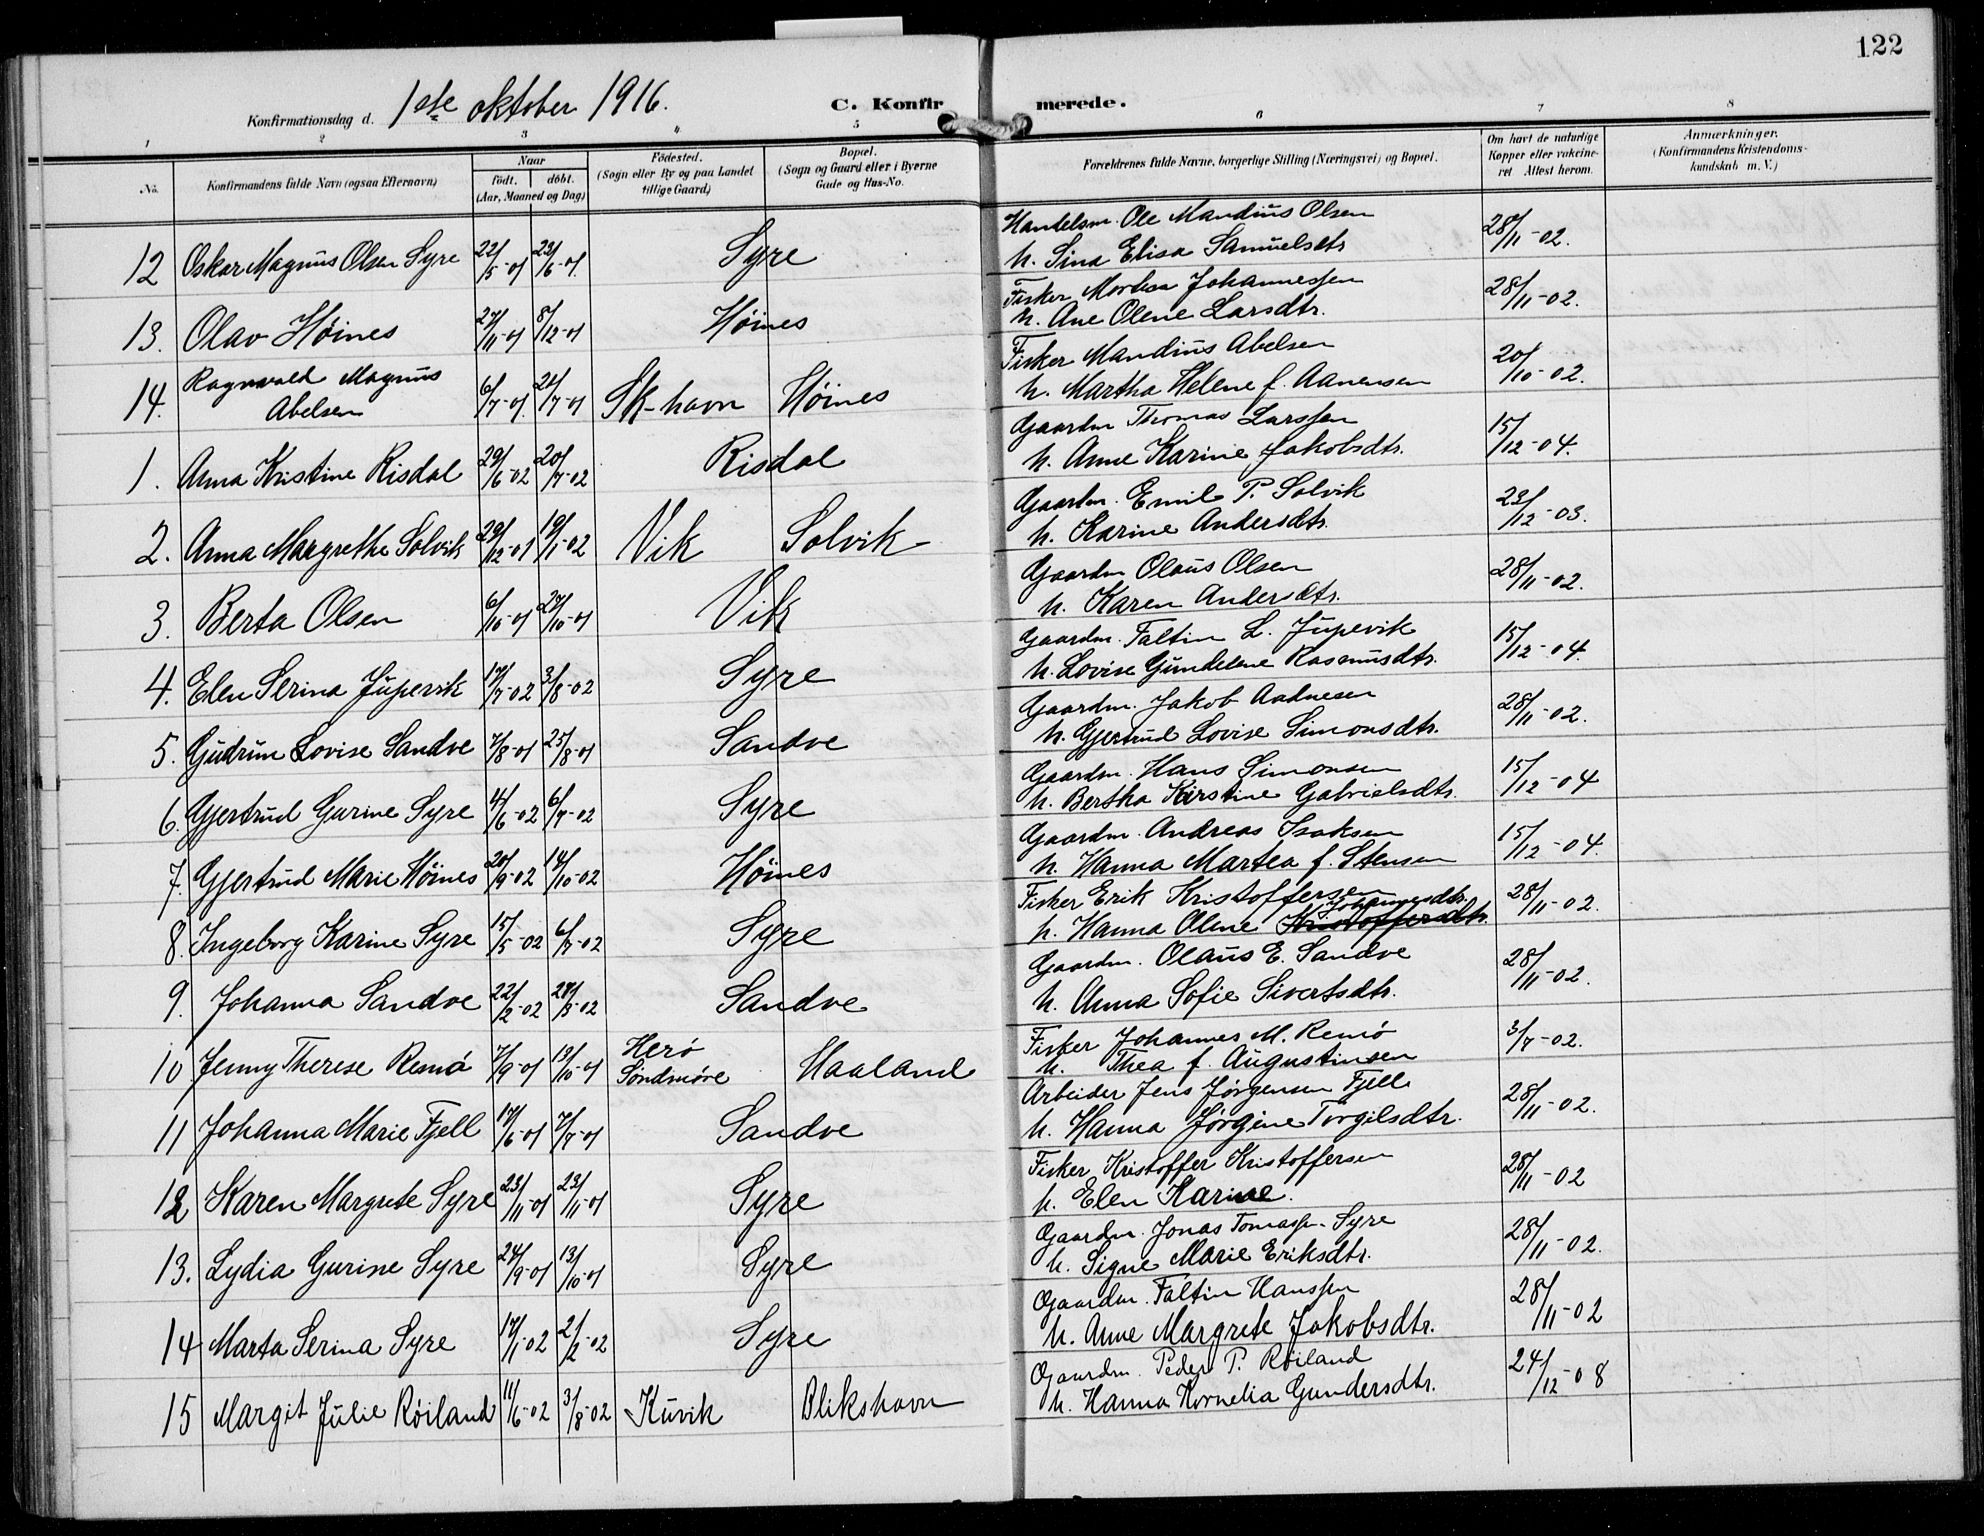 122
Konfirmationsdag d. 1ste oktober 1916. C. Konfirmerede.
1 2 3 4 5 6 7 8
No. Konfirmandens fulde Navn (ogsaa Efternavn) Naar født. døbt. (Aar, Maaned og Dag) Fødested. (Sogn eller By og paa Landet tillige Gaard) Bopæl. (Sogn og Gaard eller i Byerne Gade og Hus-No. Forældrenes fulde Navne, borgerlige Stilling (Næringsvei) og Bopæl. Om havt de naturlige Kopper eller vakcineret Attest herom. Anmærkninger. (Konfirmandens Kristendomskundskab m. V.)
12 Oskar Magnus Olsen Syre 22/5-01 23/6-01. Syre Handelsm. Ole Mandius Olsen 28/11-02.
h. Sina Elisa Samuelsdtr
13. Olav Höines 27/11-01 8/12-01 Höines Fisker Morten Johannessen 28/11-02.
h. Ane Olene Larsdtr.
14. Ragnvald Magnus Abelsen 6/7-01. 21/7-01 Sk-havn Höines Fisker Mandius Abelsen 20/10-02.
h. Martha Helene f. Aanensen
1. Anna Kristine Risdal 29/6-02 20/7-02 Risdal Gaardm Thomas Larssen 15/12-04.
h. Anne Karine Jakobsdtr.
2. Anna Margrethe Solvik 29/12-01 19/1-02 Vik Solvik Gaardm. Emil P. Solvik 23/12-03.
h. Karine Andersdtr.
3. Berta Olsen 6/10-01 27/10-01 Vik Gaardm Olaus Olsen 28/11-02.
h. Karen Andersdtr.
4. Elen Serina Jupevik 17/7-02 3/8-02 Syre Gaardm. Faltin L. Jupevik 15/12-04.
h. Lovise Gundelene Rasmusdtr.
5. Gudrun Lovise Sandve 7/8-01 25/8-01 Sandve Gaardm. Jakob Aadnesen 28/11-02.
h. Gjertrud Lovise Simonsdtr.
6. Gjertrud Gurine Syre 4/6-02 6/7-02 Syre Gaardm. Hans Simonsen 15/12-04
h. Bertha Kirstine Gabrielsdtr.
7. Gjertrud Marie Höines 20/9-02 14/10-02 Höines Gaardm. Andreas Isaksen 15/12-04.
h. Hanna Martea f. Stensen
8. Ingeborg Karine Syre 15/5-02 6/7-02 Syre Fisker Erik Kristoffersen 28/11-02.
h. Hanna Olene Kristoffersdtr. Johannesdtr.
9. Johanna Sandve 22/2-02 28/3-02 Sandve Gaardm. Olaus E. Sandve 28/11-02.
h. Anna Sofie Sivertsdtr.
10 Jenny Therese Remö 7/9-01 13/10-01 Herö Söndmöre Haaland Fisker Johannes M. Remö 3/7-02.
h. Thea f. Augustinsen
11 Johanna Marie Fjell 17/6-01 7/7-01 Sandve Arbeider Jens Jörgensen Fjell 28/11-02.
h. Hanna Jörgine Torgilsdtr.
12 Karen Margrete Syre 23/11-01 23/11-01 Syre Fisker Kristoffer Kristoffersen 28/11-02
h. Elen Karine.
13. Lydia Gurine Syre 24/9-01 13/10-01 Syre Gaardm. Jonas Tomassen Syre 28/11-02.
h. Signe Marie Eriksdtr.
14 Marta Serina Syre 17/1-02 2/2-02 Syre Gaardm. Faltin Hanssen 28/11-02
h. Anne Margrete Jakobsdtr.
15 Margit Julie Röiland 11/6-02 3/8-02 Kuvik Blikshavn Gaardm. Peder P. Röiland 24/12-08
h. Hanna Kornelia Gundersdtr.